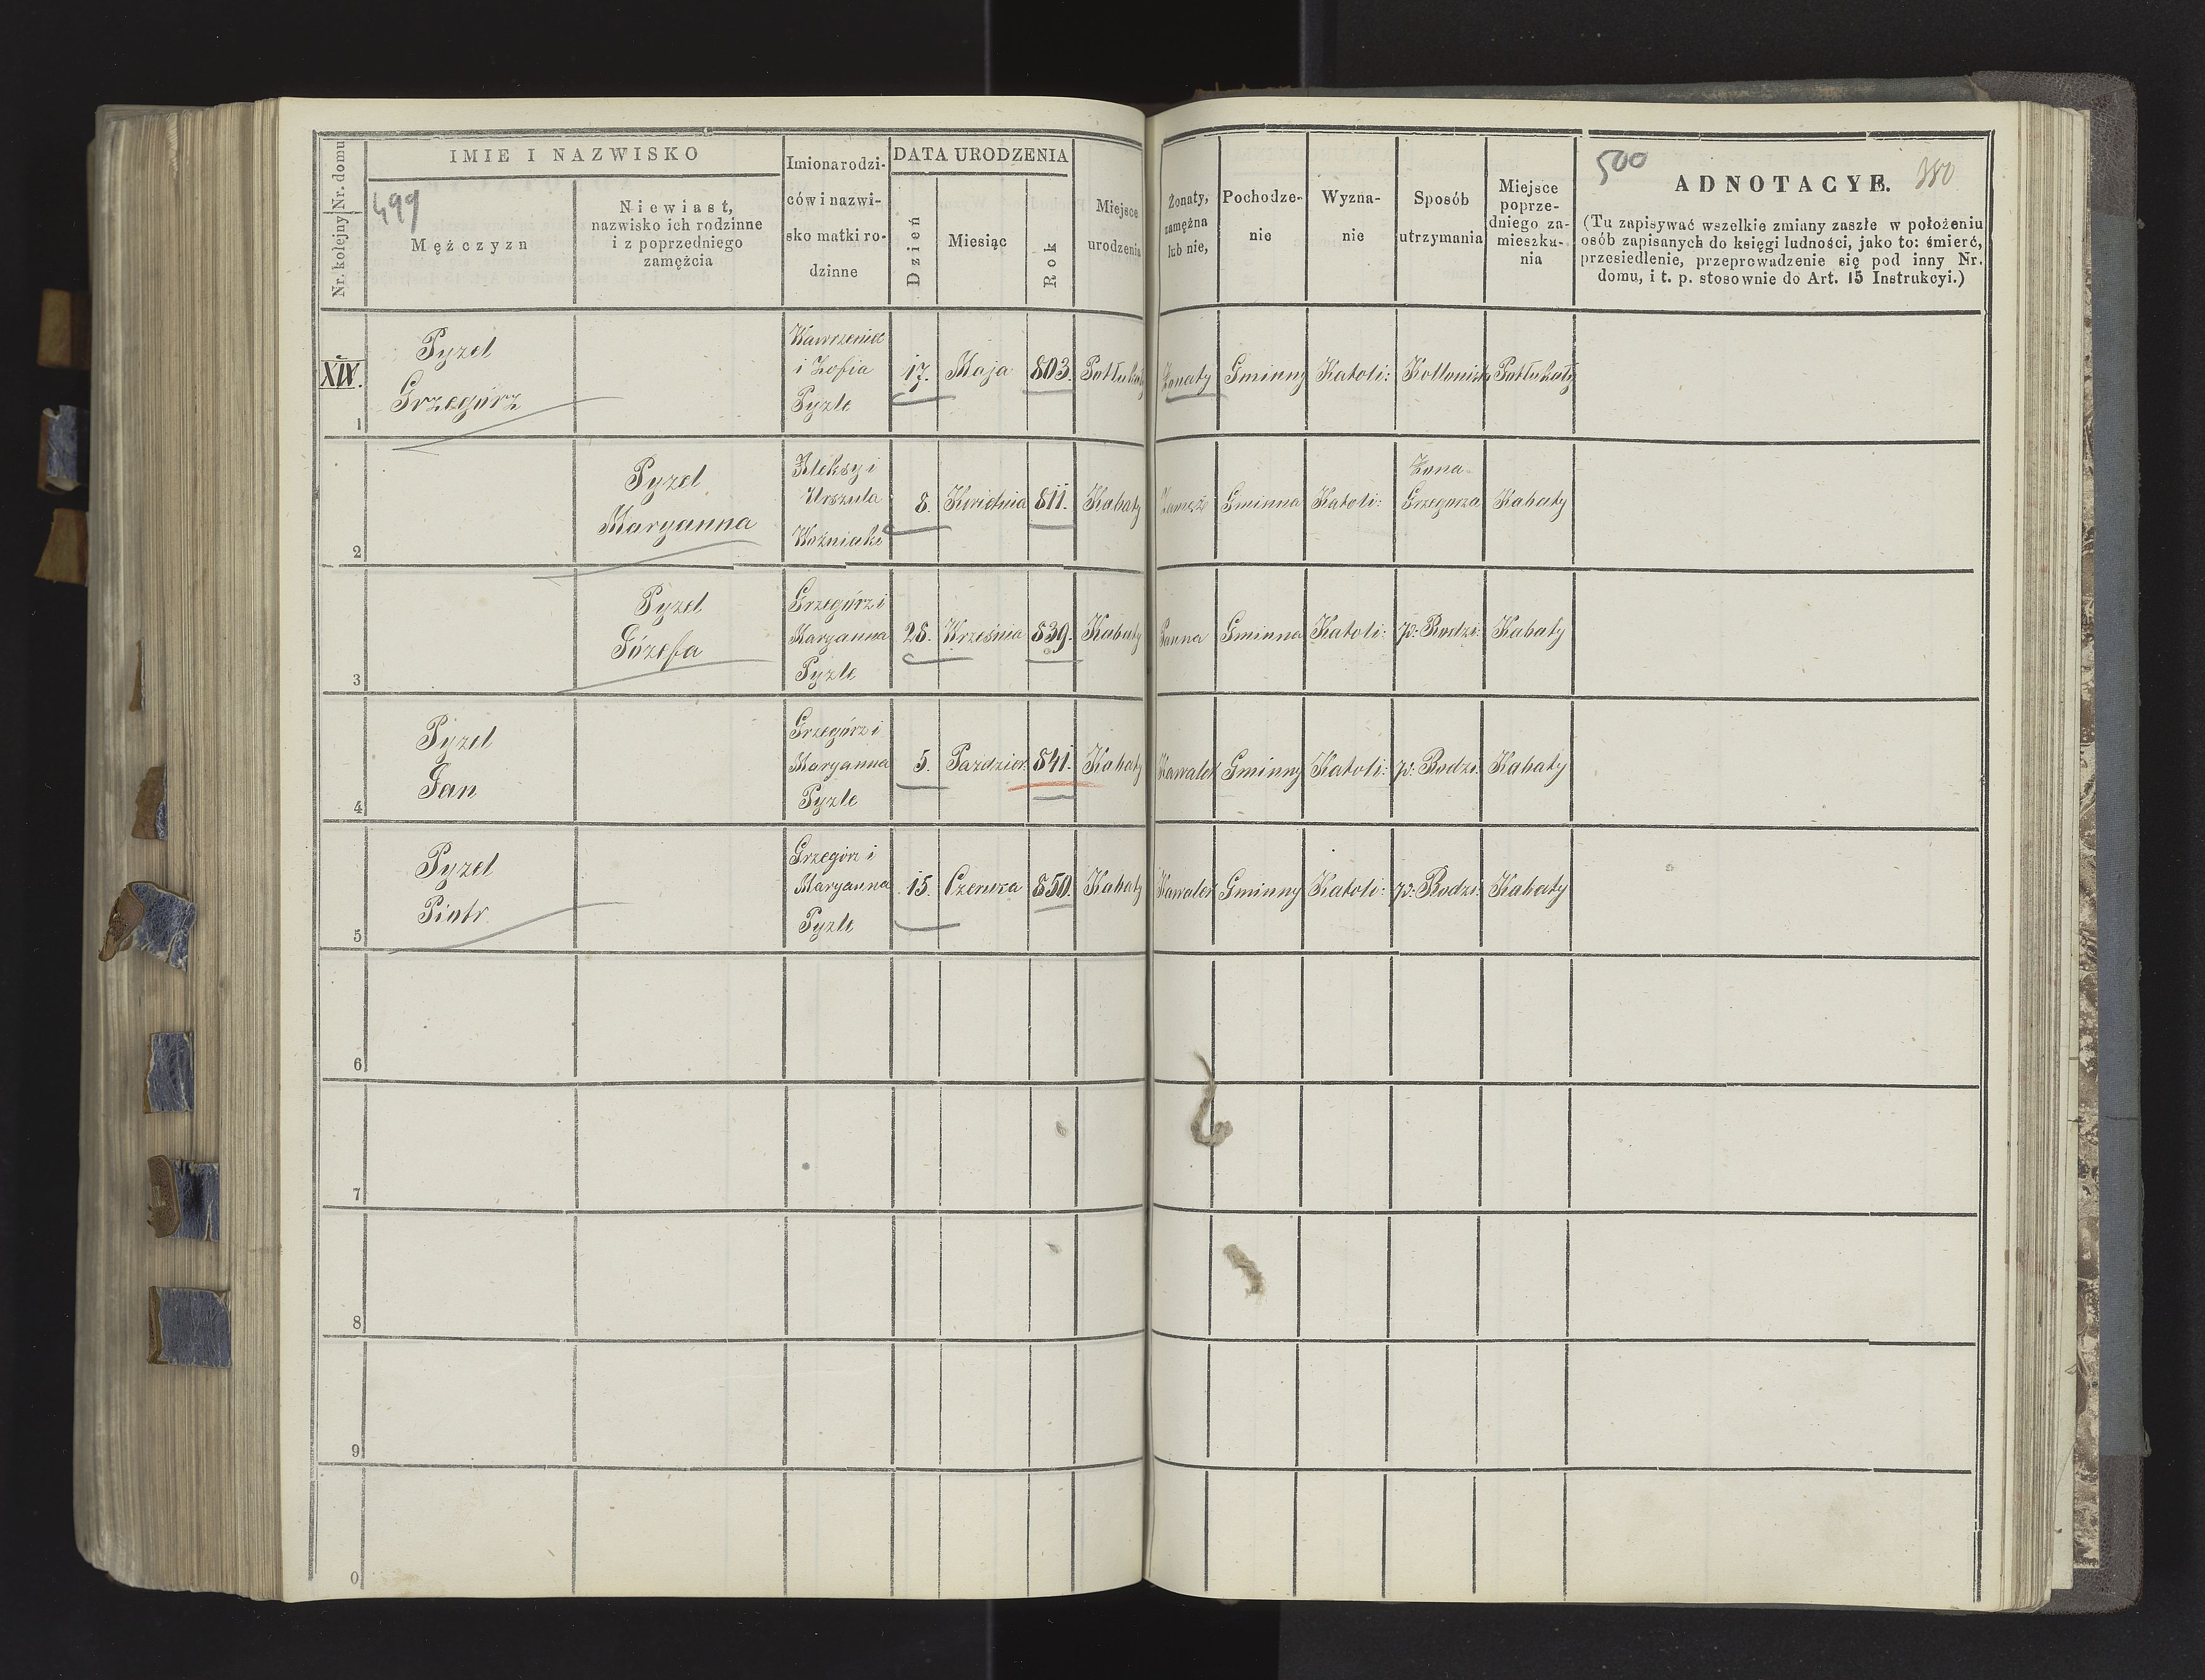 Nr. kolejny Nr. domu
IMIE I NAZWISKO
499
Mężczyzn
Niewiast,
nazwisko ich rodzinne
i z poprzedniego
zamężcia
Imiona rodzi-
ców i nazwi-
sko matki ro-
dzinne
DATA URODZENIA
Dzień
Miesiąc
Rok
Miejsce
urodzenia
Żonaty,
zamężna
lub nie,
Pochodze-
nie
Wyzna-
nie
Sposób
utrzymania
Miejsce
poprze-
dniego za-
mieszka-
nia
500
ADNOTACYE.
380
(Tu zapisywać wszelkie zmiany zaszłe w położeniu
osób zapisanych do księgi ludności, jako to: śmierć,
przesiedlenie, przeprowadzenie się pod inny Nr.
domu, i t. p. stosownie do Art. 15 Instrukcyi.)
XIV.
1
Pyzel
Grzegórz
Wawrzeniec
i Zofia
Pyzle
17. Maja 803.
Żonaty Gminny Katoli:
2
Pyzel
Maryanna
Aleksy i
Urszula
Woźniaki
8. Kwietnia 811. Kabaty
Zamęż Gminna Katoli:
Żona
Grzegorza
Kabaty
3
Pyzel
Józefa
Grzegórz i
Maryanna
Pyzle
28. Września 839. Kabaty
Panna Gminna Katoli: p: Rodzi: Kabaty
4
Pyzel
Jan
Grzegórz i
Maryanna
Pyzle
5. Pazdzier: 841. Kabaty
Kawaler Gminny Katoli: p: Rodzi: Kabaty
5
Pyzel
Piotr
Grzegórz i
Maryanna
Pyzle
15. Czerwca 850. Kabaty
Kawaler Gminny Katoli: p: Rodzi: Kabaty
6
7
8
9
0